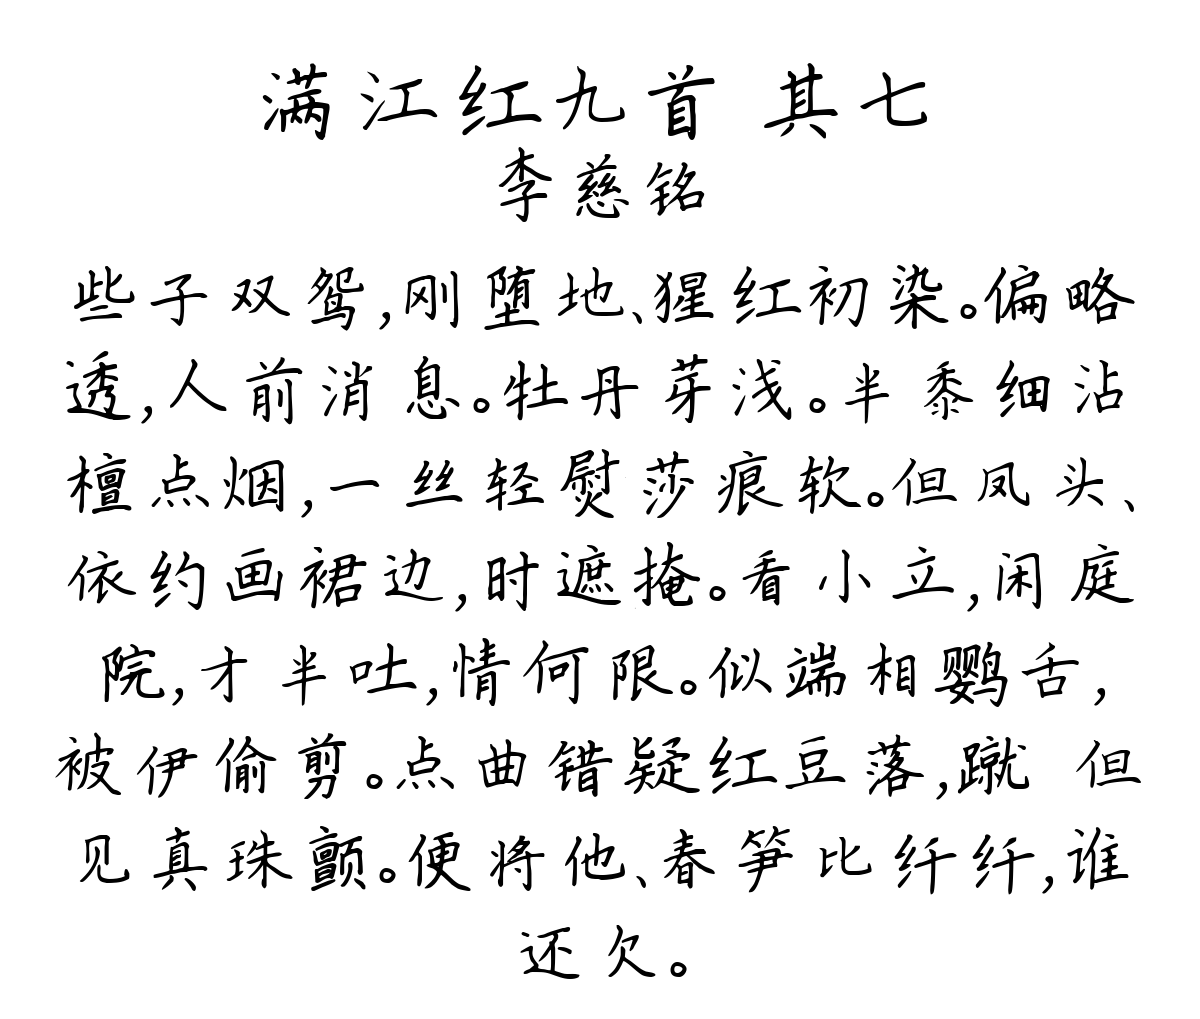 满江红九首 其七
李慈铭
些子双鸳,刚堕地、猩红初染。偏略
透,人前消息。牡丹芽浅。半黍细沾
檀点烟,一丝轻熨莎痕软。但凤头、
依约画裙边,时遮掩。看小立,闲庭
院,才半吐,情何限。似端相鹦舌,
被伊偷剪。点曲错疑红豆落,蹴 但
见真珠颤。便将他、春笋比纤纤,谁
还欠。